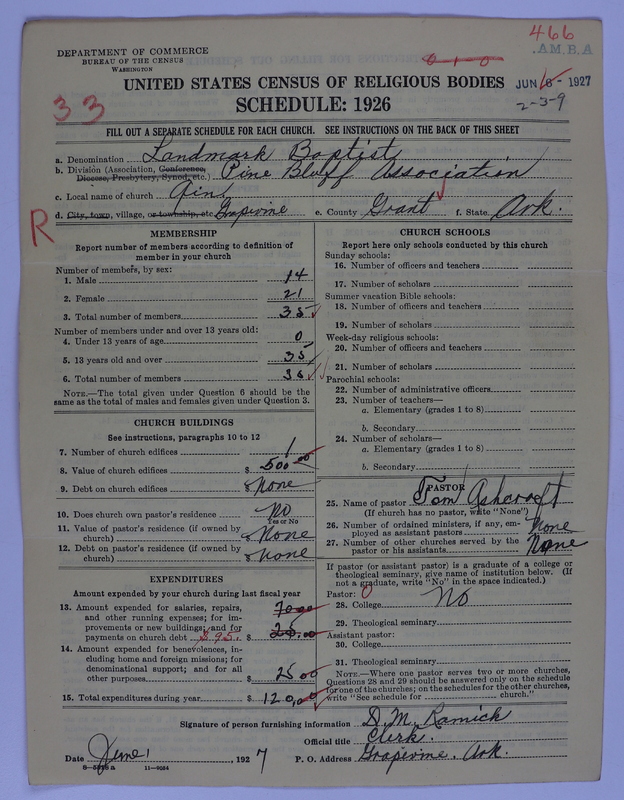 466
A.B.M.A.
DEPARTMENT OF COMMERCE
BUREAU OF THE CENSUS
WASHINGTON
0 1 0
UNITED STATES CENSUS OF RELIGIOUS BODIES
JUN 6 - 1927
SCHEDULE: 1926
2-3-9
33
FILL OUT A SEPARATE SCHEDULE FOR EACH CHURCH. SEE INSTRUCTIONS ON THE BACK OF THIS SHEET
a. Denomination Landmark Baptist
b. Division (Association, Conference, Diocese, Presbytery, Synod, etc.) Pine Bluff Association
c. Local name of church Gin
d. City, town, village, or township, etc. Grapevine e. County Grant f. State Ark.
R
MEMBERSHIP
Report number of members according to definition of
member in your church
Number of members, by sex:
1. Male 14
2. Female 21
3. Total number of members 35
Number of members under and over 13 years old:
4. Under 13 years of age 0
5. 13 years old and over 35
6. Total number of members 35
NOTE.—The total given under Question 6 should be the
same as the total of males and females given under Question 3.
CHURCH BUILDINGS
See instructions, paragraphs 10 to 12
7. Number of church edifices 1
8. Value of church edifices $ 500.00
9. Debt on church edifices $ None
10. Does church own pastor's residence No
Yes or No
11. Value of pastor's residence (if owned by
church) $ None
12. Debt on pastor's residence (if owned by
church) $ None
EXPENDITURES
Amount expended by your church during last fiscal year
13. Amount expended for salaries, repairs, 70.00
and other running expenses; for im-
provements or new buildings; and for
payments on church debt $95. $ 25.00
14. Amount expended for benevolences, in-
cluding home and foreign missions; for
denominational support; and for all
other purposes $ 25.00
15. Total expenditures during year $ 120.00
CHURCH SCHOOLS
Report here only schools conducted by this church
Sunday schools:
16. Number of officers and teachers
17. Number of scholars
Summer vacation Bible schools:
18. Number of officers and teachers
19. Number of scholars
Week-day religious schools:
20. Number of officers and teachers
21. Number of scholars
Parochial schools:
22. Number of administrative officers
23. Number of teachers—
a. Elementary (grades 1 to 8)
b. Secondary
24. Number of scholars—
a. Elementary (grades 1 to 8)
b. Secondary
PASTOR
25. Name of pastor Tom Ashcroft
(If church has no pastor, write "None")
26. Number of ordained ministers, if any, em-
ployed as assistant pastors None
27. Number of other churches served by the
pastor or his assistants None
If pastor (or assistant pastor) is a graduate of a college or
theological seminary, give name of institution below. (If
not a graduate, write "No" in the space indicated.)
Pastor: 0
28. College No
29. Theological seminary
Assistant pastor:
30. College
31. Theological seminary
NOTE.—Where one pastor serves two or more churches,
Questions 28 and 29 should be answered only on the schedule
for one of the churches; on the schedules for the other churches,
write "See schedule for church."
Signature of person furnishing information D. M. Ramick
Official title Clerk.
Date June 1, 1927 P. O. Address Grapevine, Ark.
8—5518 a 11—9034